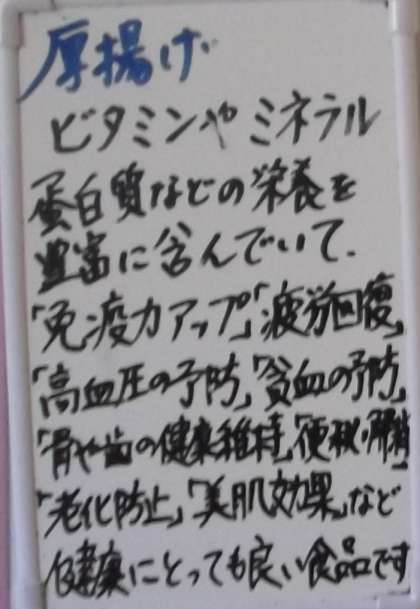 厚揚げ
ビタミンやミネラル
蛋白質などの栄養を
豊富に含んでいて、
「免疫力アップ」「疲労回復」
「高血圧の予防」「貧血の予防」
「骨や歯の健康維持」「便秘・解消」
「老化防止」「美肌効果」など
健康にとっても良い食品です